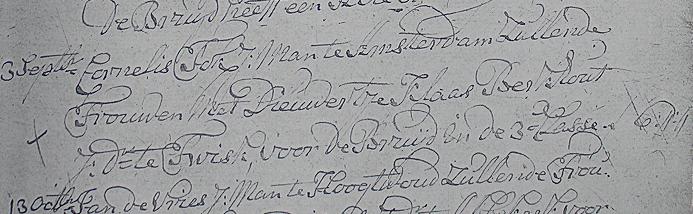 de Bruijd heeft een
3 Septb. Cornelis Fok J: Man te Amsterdam Zullende
Trouwen Met Dieuwertje Klaas Berkhout
J: Dr. te Twisk, voor de Bruijd in de 3e Classe - 6:-:-
13 Octbr Jan de Vries J: Man te Hoogtwoud Zullende Trou:
voor